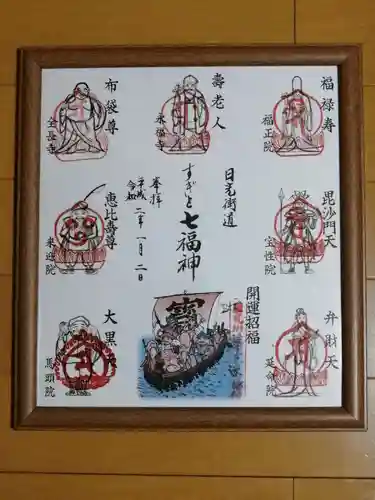 福禄寿
福正院
壽老人
永福寺
布袋尊
全長寺
毘沙門天
宝性院
日光街道
すぎと七福神
奉拝
令和二年一月二日
恵比寿尊
来迎院
弁財天
延命院
開運招福
寳
大黒天
馬頭院